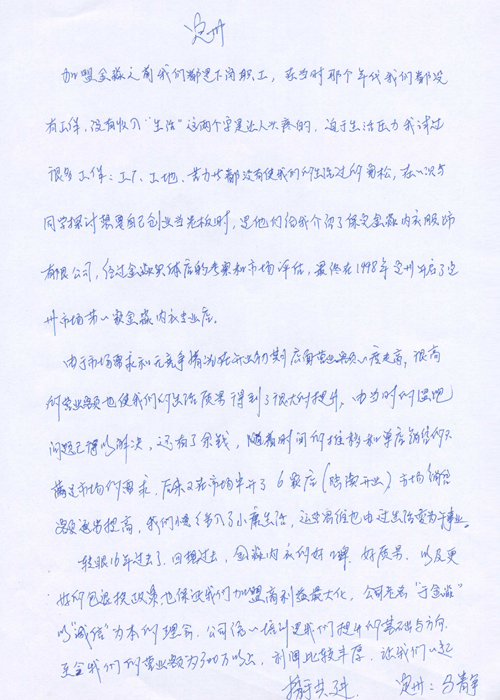 定州
加盟金淼之前我们都是下岗职工，在当时那个年代我们都没
有工作，没有收入"生活"这两个字是让人头疼的，迫于生活压力我试过
很多工作：工厂、工地、苦力等都没有使我们的生活过的多松，在一次与
同学探讨想要自己创业当老板时，是他们给我介绍了保定金淼内衣服饰
有限公司，经过金淼实体店的考察和市场评估，最终在1998年定州开启了定
州市场第一家金淼内衣专业店。
由于市场需求和无竞争情况在开业初期店面营业额一度走高，很高
的营业额也使我们的生活质量得到了很大的提升，由当时的温饱
问题已得以解决，还有了余钱，随着时间的推移和单店销售的不
满足市场的需求，后来又在市场里开了6家店（陆续开业）市场销售
额逐步提高，我们便步入了小康生活，这生活也由过生活变为干事业。
转眼16年过去了，回想过去，金淼内衣的好口碑、好质量、以及更
好的包装换政策也保证我们加盟商利益最大化，公司老总"于金淼"
以"诚信"为本的理念，公司给以培训是我们提升的基础与方向
至今我们的营业额为300万以上，利润比较丰厚，让我们一起
携手共进。 定州：马青